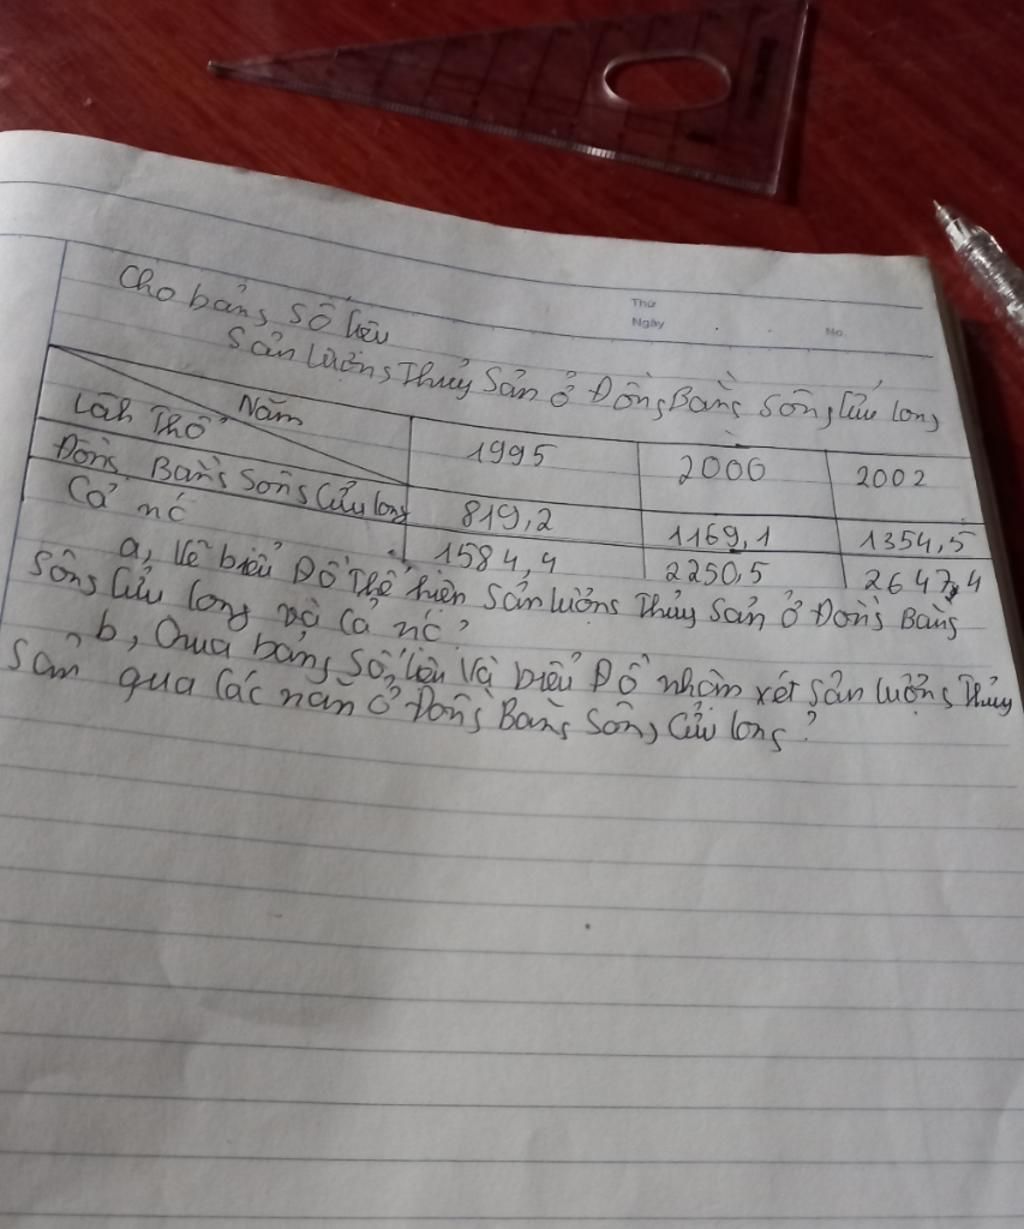 Thứ
Ngày
No.
Cho bảng số liệu
Sản lượng Thủy Sản ở Đồng Bằng Sông Cửu long
Năm
Lãh Thổ
1995
2000
2002
Đồng Bằng Sông Cửu long
819,2
1169,1
1354,5
Cả nc
1584,4
2250,5
2647,4
a, Vẽ biểu Đồ Thể hiện sản lượng Thủy Sản ở Đồng Bằng
Sông Cửu long và cả nc?
b, Qua bảng số liệu và biểu Đồ nhận xét sản lượng Thủy
sản qua các năm ở Đồng Bằng Sông Cửu long?